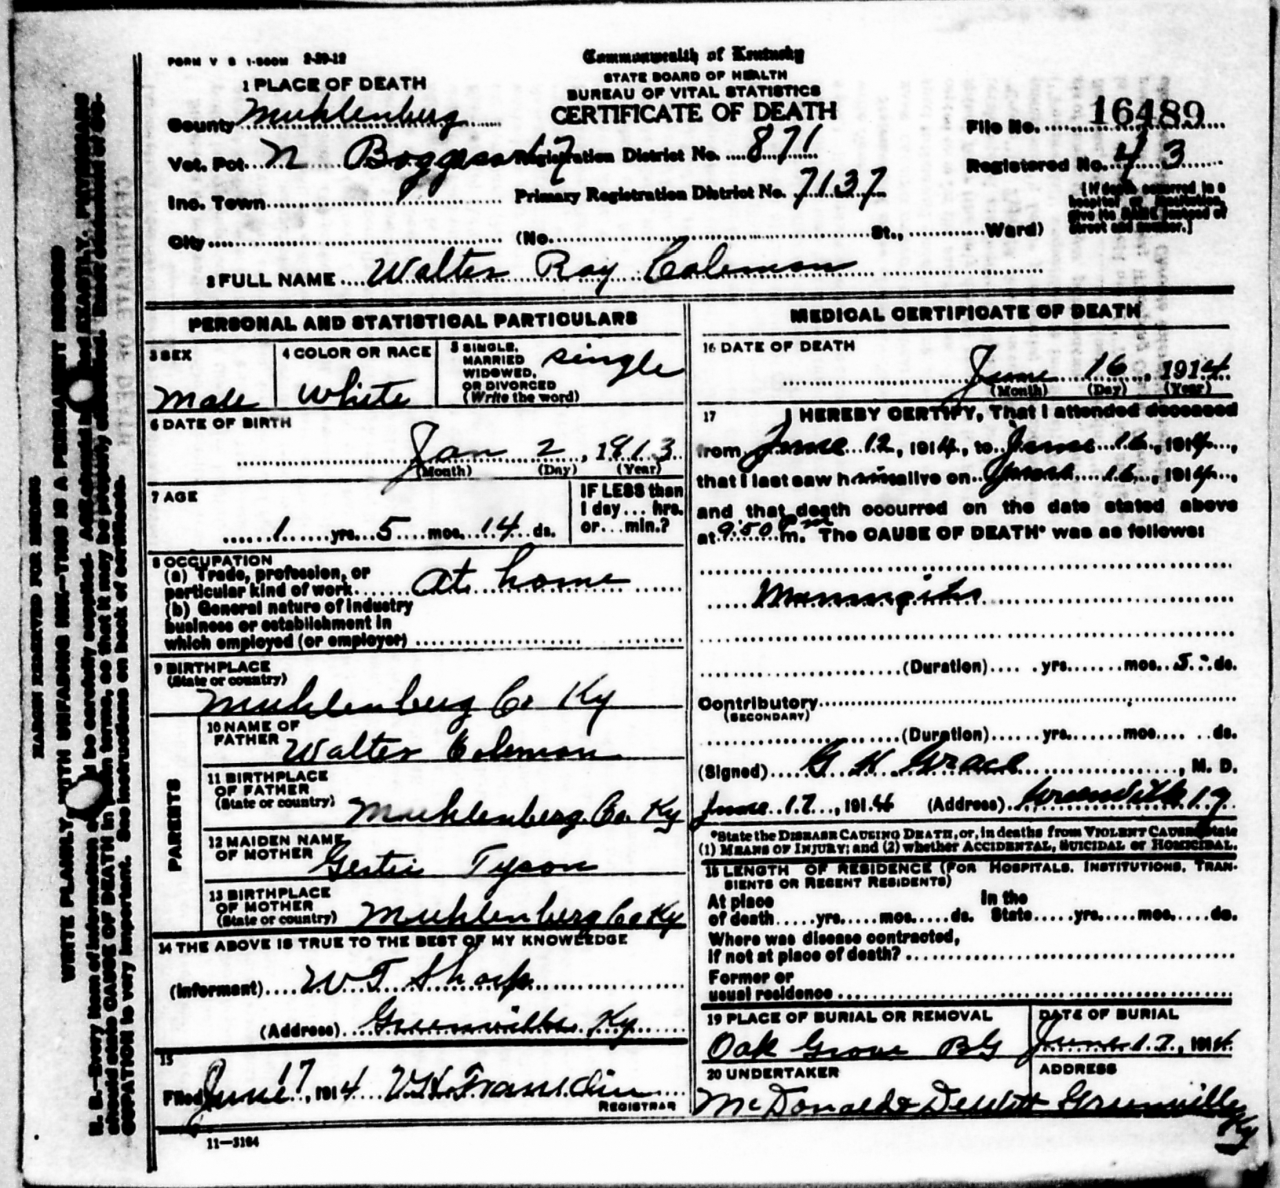 FORM V S 1-500M 2-29-12
Commonwealth of Kentucky
STATE BOARD OF HEALTH
BUREAU OF VITAL STATISTICS
CERTIFICATE OF DEATH
1 PLACE OF DEATH
County Muhlenberg
File No. 16489
Vot. Pct N Boggess 17 Registration District No. 871
Registered No. 43
Inc. Town Primary Registration District No. 7137
(If death occurred in a hospital or institution, give its NAME instead of street and number.)
City (No. St., Ward)
2 FULL NAME Walter Roy Coleman
PERSONAL AND STATISTICAL PARTICULARS
3 SEX
Male
4 COLOR OR RACE
White
5 SINGLE, MARRIED WIDOWED, OR DIVORCED (Write the word) single
6 DATE OF BIRTH
Jan 2, 1913
(Month) (Day) (Year)
7 AGE
1 yrs. 5 mos. 14 ds.
IF LESS than 1 day... hrs. or... min.?
8 OCCUPATION
(a) Trade, profession, or particular kind of work at home
(b) General nature of industry
business or establishment in
which employed (or employer)
9 BIRTHPLACE
(State or country)
Muhlenberg Co Ky
PARENTS
10 NAME OF FATHER Walter Coleman
11 BIRTHPLACE OF FATHER
(State or country) Muhlenberg Co Ky
12 MAIDEN NAME OF MOTHER Gertie Tyson
13 BIRTHPLACE OF MOTHER
(State or country) Muhlenberg Co Ky
14 THE ABOVE IS TRUE TO THE BEST OF MY KNOWLEDGE
(Informant) W T Sharp
(Address) Greenville Ky
15
Filed June 17, 1914 V H Franklin
REGISTRAR
11—3184
MEDICAL CERTIFICATE OF DEATH
16 DATE OF DEATH
June 16, 1914
(Month) (Day) (Year)
17 I HEREBY CERTIFY, That I attended deceased
from June 12, 1914, to June 16, 1914,
that I last saw him alive on June 16, 1914,
and that death occurred on the date stated above
at 9:50 P m. The CAUSE OF DEATH* was as follows:
Meningitis
(Duration) yrs. mos. 5 ds.
Contributory
(SECONDARY)
(Duration) yrs. mos. ds.
(Signed) G H Grace, M. D.
June 17, 1914 (Address) Greenville Ky
*State the DISEASE CAUSING DEATH, or, in deaths from VIOLENT CAUSES, state
(1) MEANS OF INJURY; and (2) whether ACCIDENTAL, SUICIDAL or HOMICIDAL.
18 LENGTH OF RESIDENCE (FOR HOSPITALS, INSTITUTIONS, TRAN-
SIENTS OR RECENT RESIDENTS)
At place of death yrs. mos. ds. In the State yrs. mos. ds.
Where was disease contracted,
if not at place of death?
Former or
usual residence
19 PLACE OF BURIAL OR REMOVAL
Oak Grove BG
DATE OF BURIAL
June 17, 1914
20 UNDERTAKER
McDonald & Dewitt
ADDRESS
Greenville Ky
MARGIN RESERVED FOR BINDING
WRITE PLAINLY, WITH UNFADING INK—THIS IS A PERMANENT RECORD